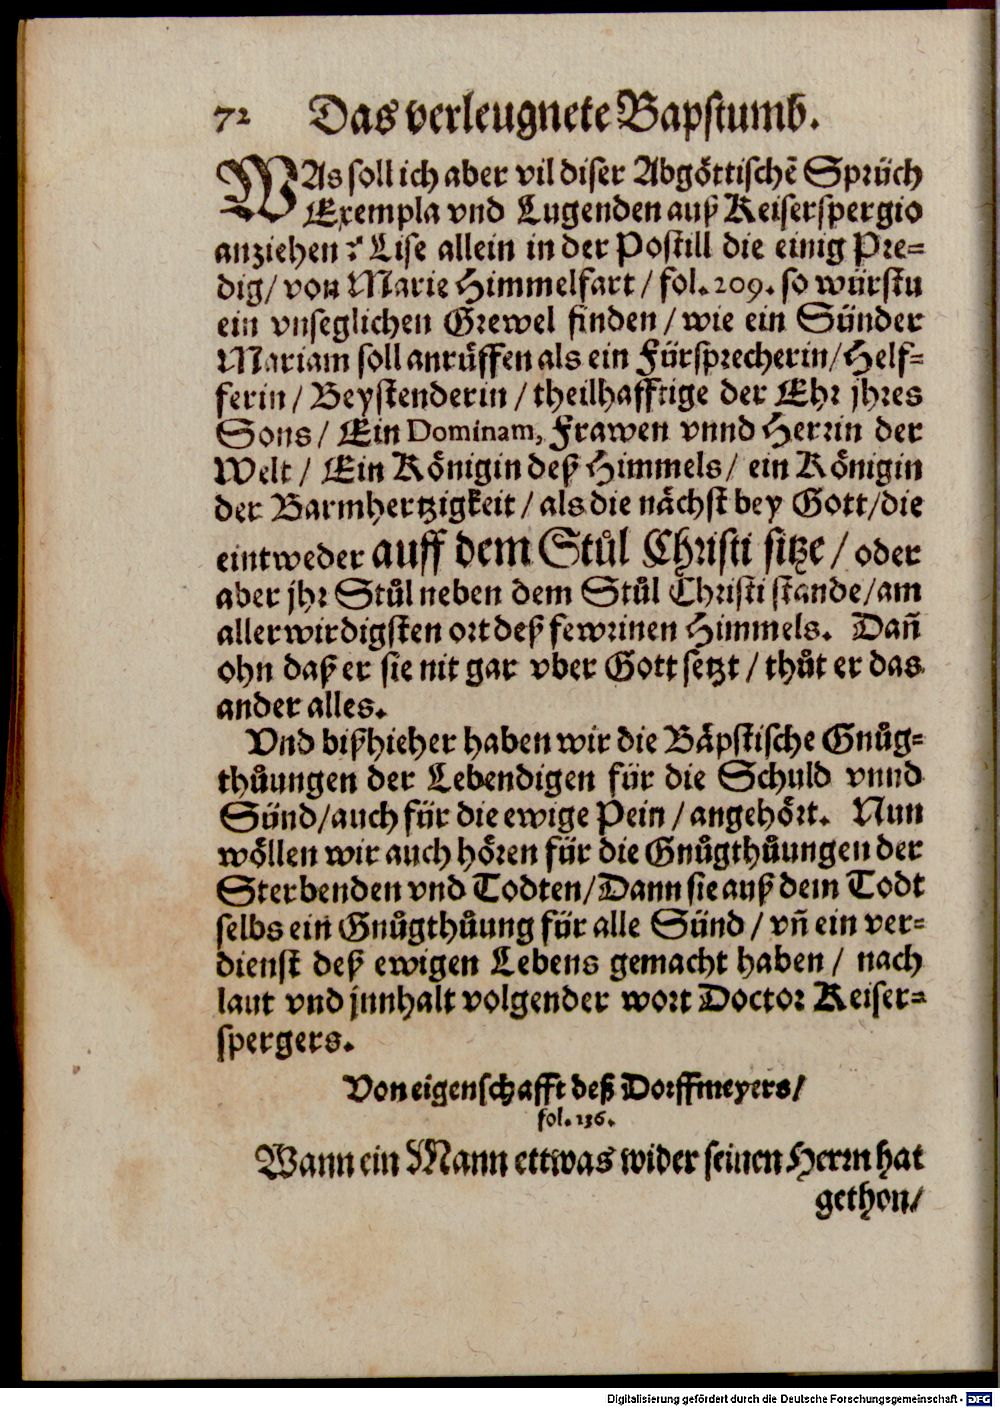 72 Das verleugnete Bapstumb.
WAs soll ich aber vil diser Abgöttischẽ Sprüch
Exempla vnd Lugenden auß Keiserspergio
anziehen? Lise allein in der Postill die einig Pre=
dig/ von Marie Himmelfart/ fol. 209. so würstu
ein vnseglichen Grewel finden/ wie ein Sünder
Mariam soll anrüffen als ein Fürsprecherin/ Helf=
ferin/ Beystenderin/ theilhafftige der Ehr jhres
Sons/ Ein Dominam, Frawen vnnd Herrin der
Welt/ Ein Königin deß Himmels/ ein Königin
der Barmhertzigkeit/ als die nächst bey Gott/ die
eintweder auff dem Stůl Christi sitze/ oder
aber jhr Stůl neben dem Stůl Christi stande/ am
allerwirdigsten ort deß fewrinen Himmels. Dañ
ohn daß er sie nit gar vber Gott setzt/ thůt er das
ander alles.
Vnd bißhieher haben wir die Bäpstische Gnůg=
thůungen der Lebendigen für die Schuld vnnd
Sünd/ auch für die ewige Pein/ angehört. Nun
wöllen wir auch hören für die Gnůgthůungen der
Sterbenden vnd Todten/ Dann sie auß dem Todt
selbs ein Gnůgthůung für alle Sünd/ vñ ein ver=
dienst deß ewigen Lebens gemacht haben/ nach
laut vnd junhalt volgender wort Doctor Keiser=
spergers.
Von eigenschafft deß Dorffmeyers/
fol. 136.
Wann ein Mann ettwas wider seinen Herrn hat
gethon/
Digitalisierung gefördert durch die Deutsche Forschungsgemeinschaft - DFG